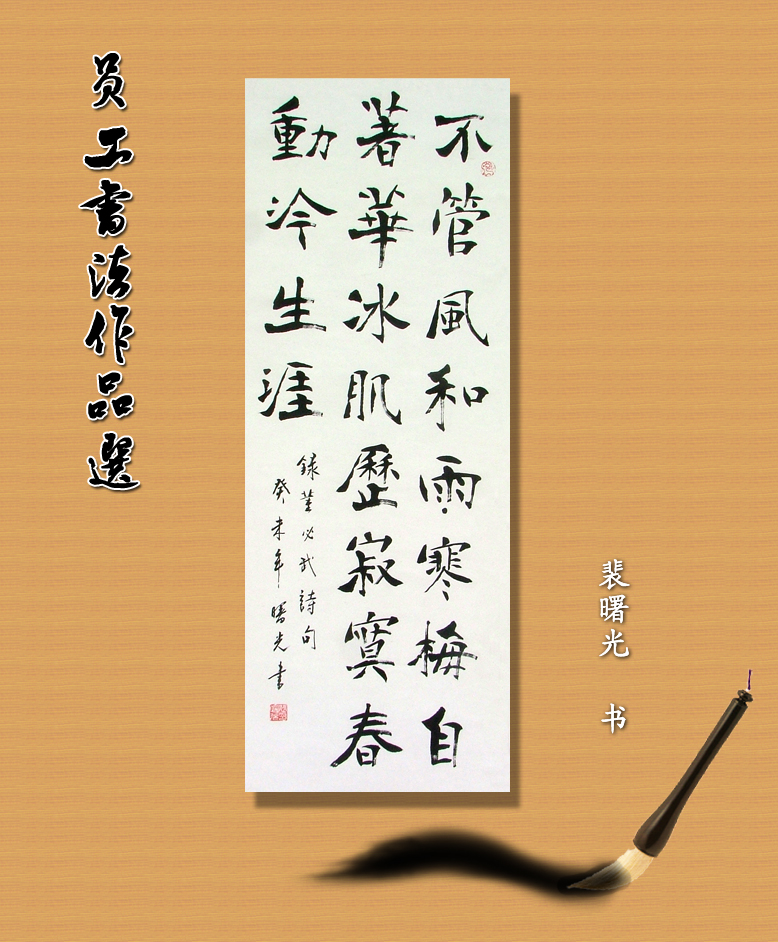 员工書法作品選
不管風和雨寒梅自
著華冰肌歷寂寞春
動冷生涯
録董必武詩句
癸未年曙光書
裴曙光 书